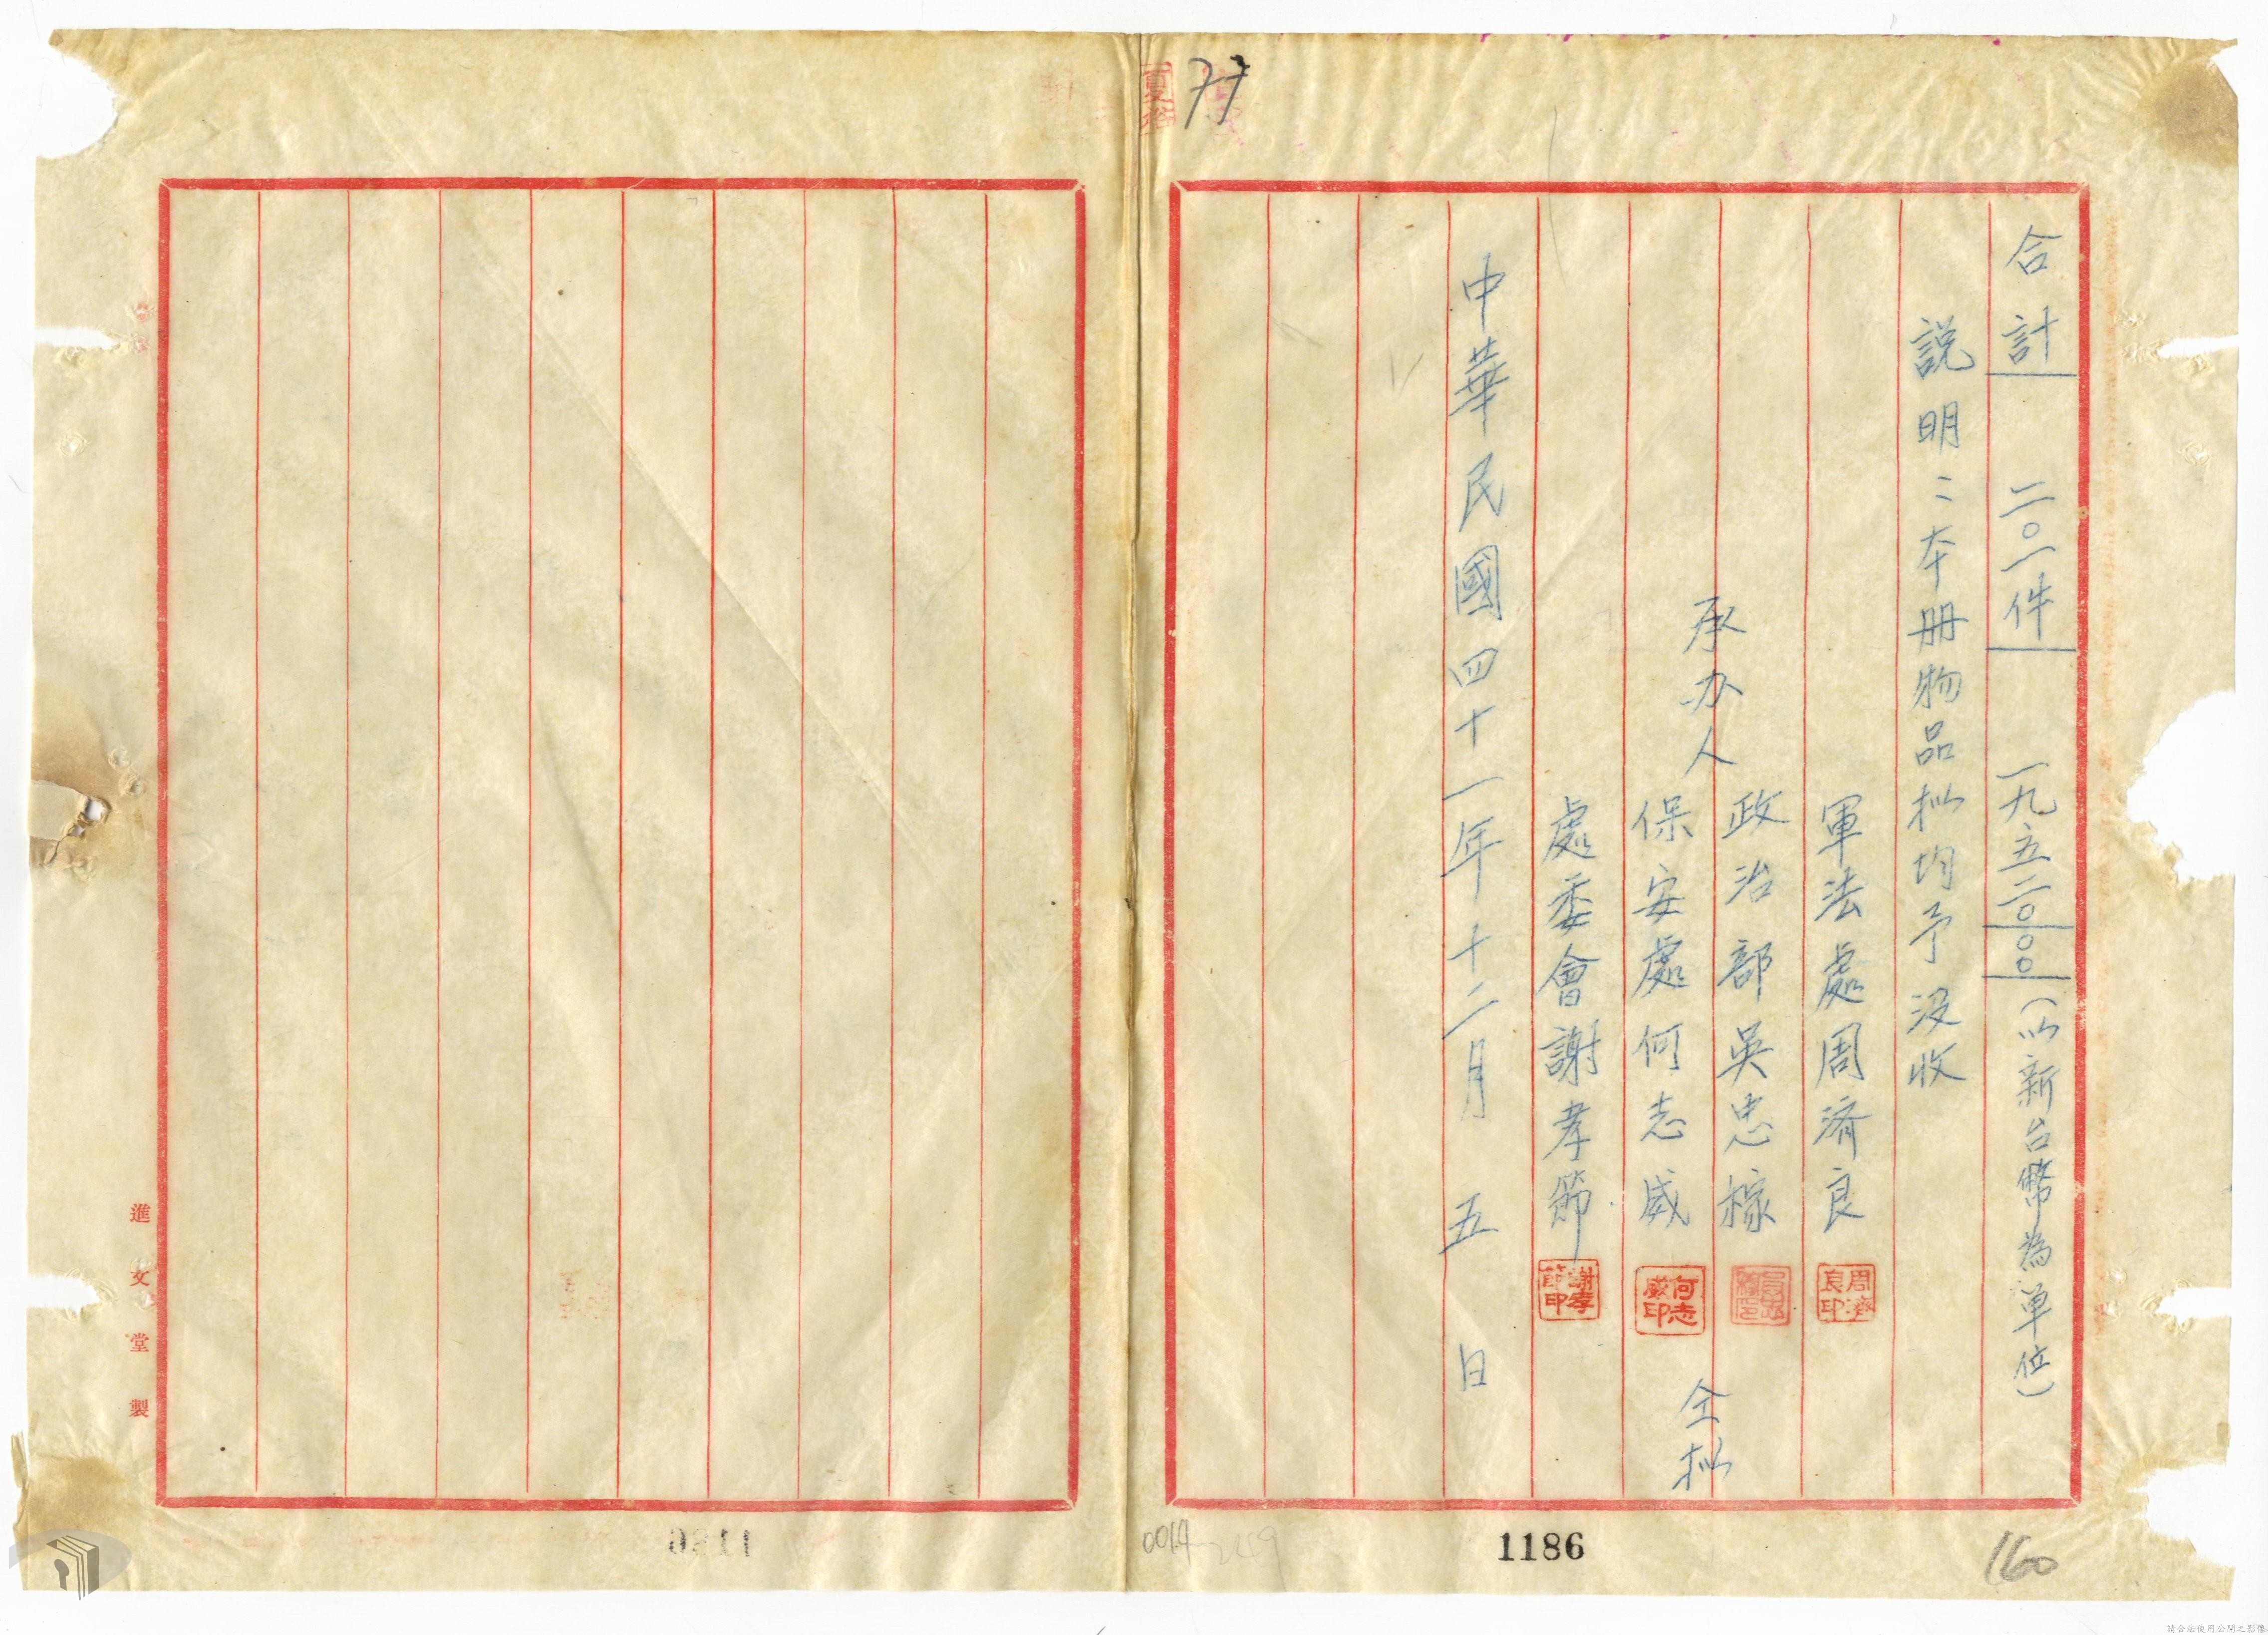 合計 二〇一件 一九、五二〇〇〇(以新台幣為單位)
説明:本册物品拟均予没收
軍法處周濟良
周濟良印
承办人
政治部吳忠稼
保安處何志威
何志威印
仝拟
處委會謝孝節
謝孝節印
中華民國四十一年十二月 五 日
1186
160
進文堂製
1186
請合法使用公開之影像